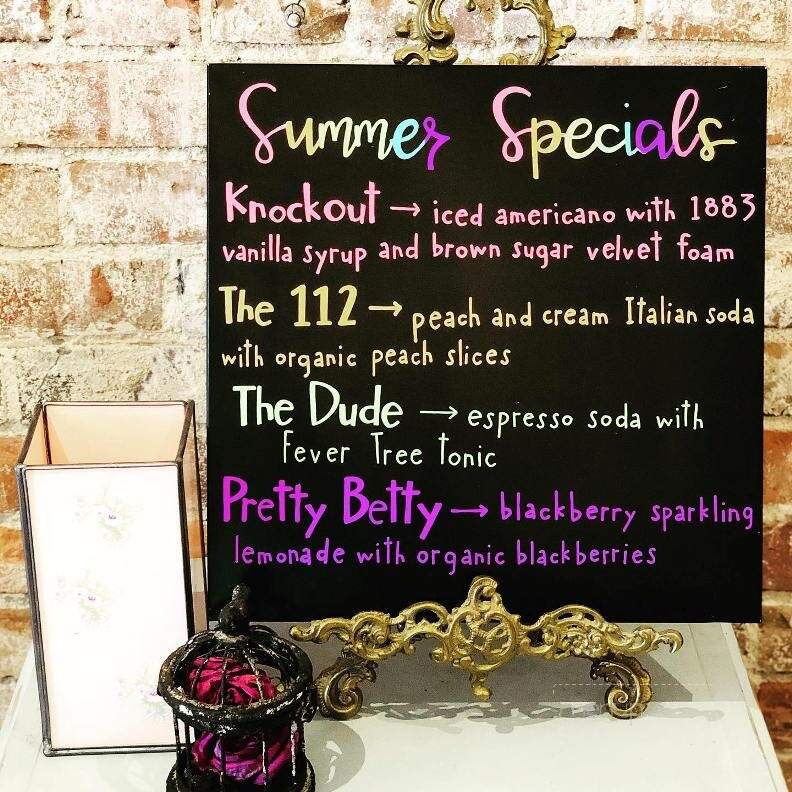 Summer Specials
Knockout → iced americano with 1883
vanilla syrup and brown sugar velvet foam
The 112 → peach and cream Italian soda
with organic peach slices
The Dude → espresso soda with
Fever Tree tonic
Pretty Betty → blackberry sparkling
lemonade with organic blackberries